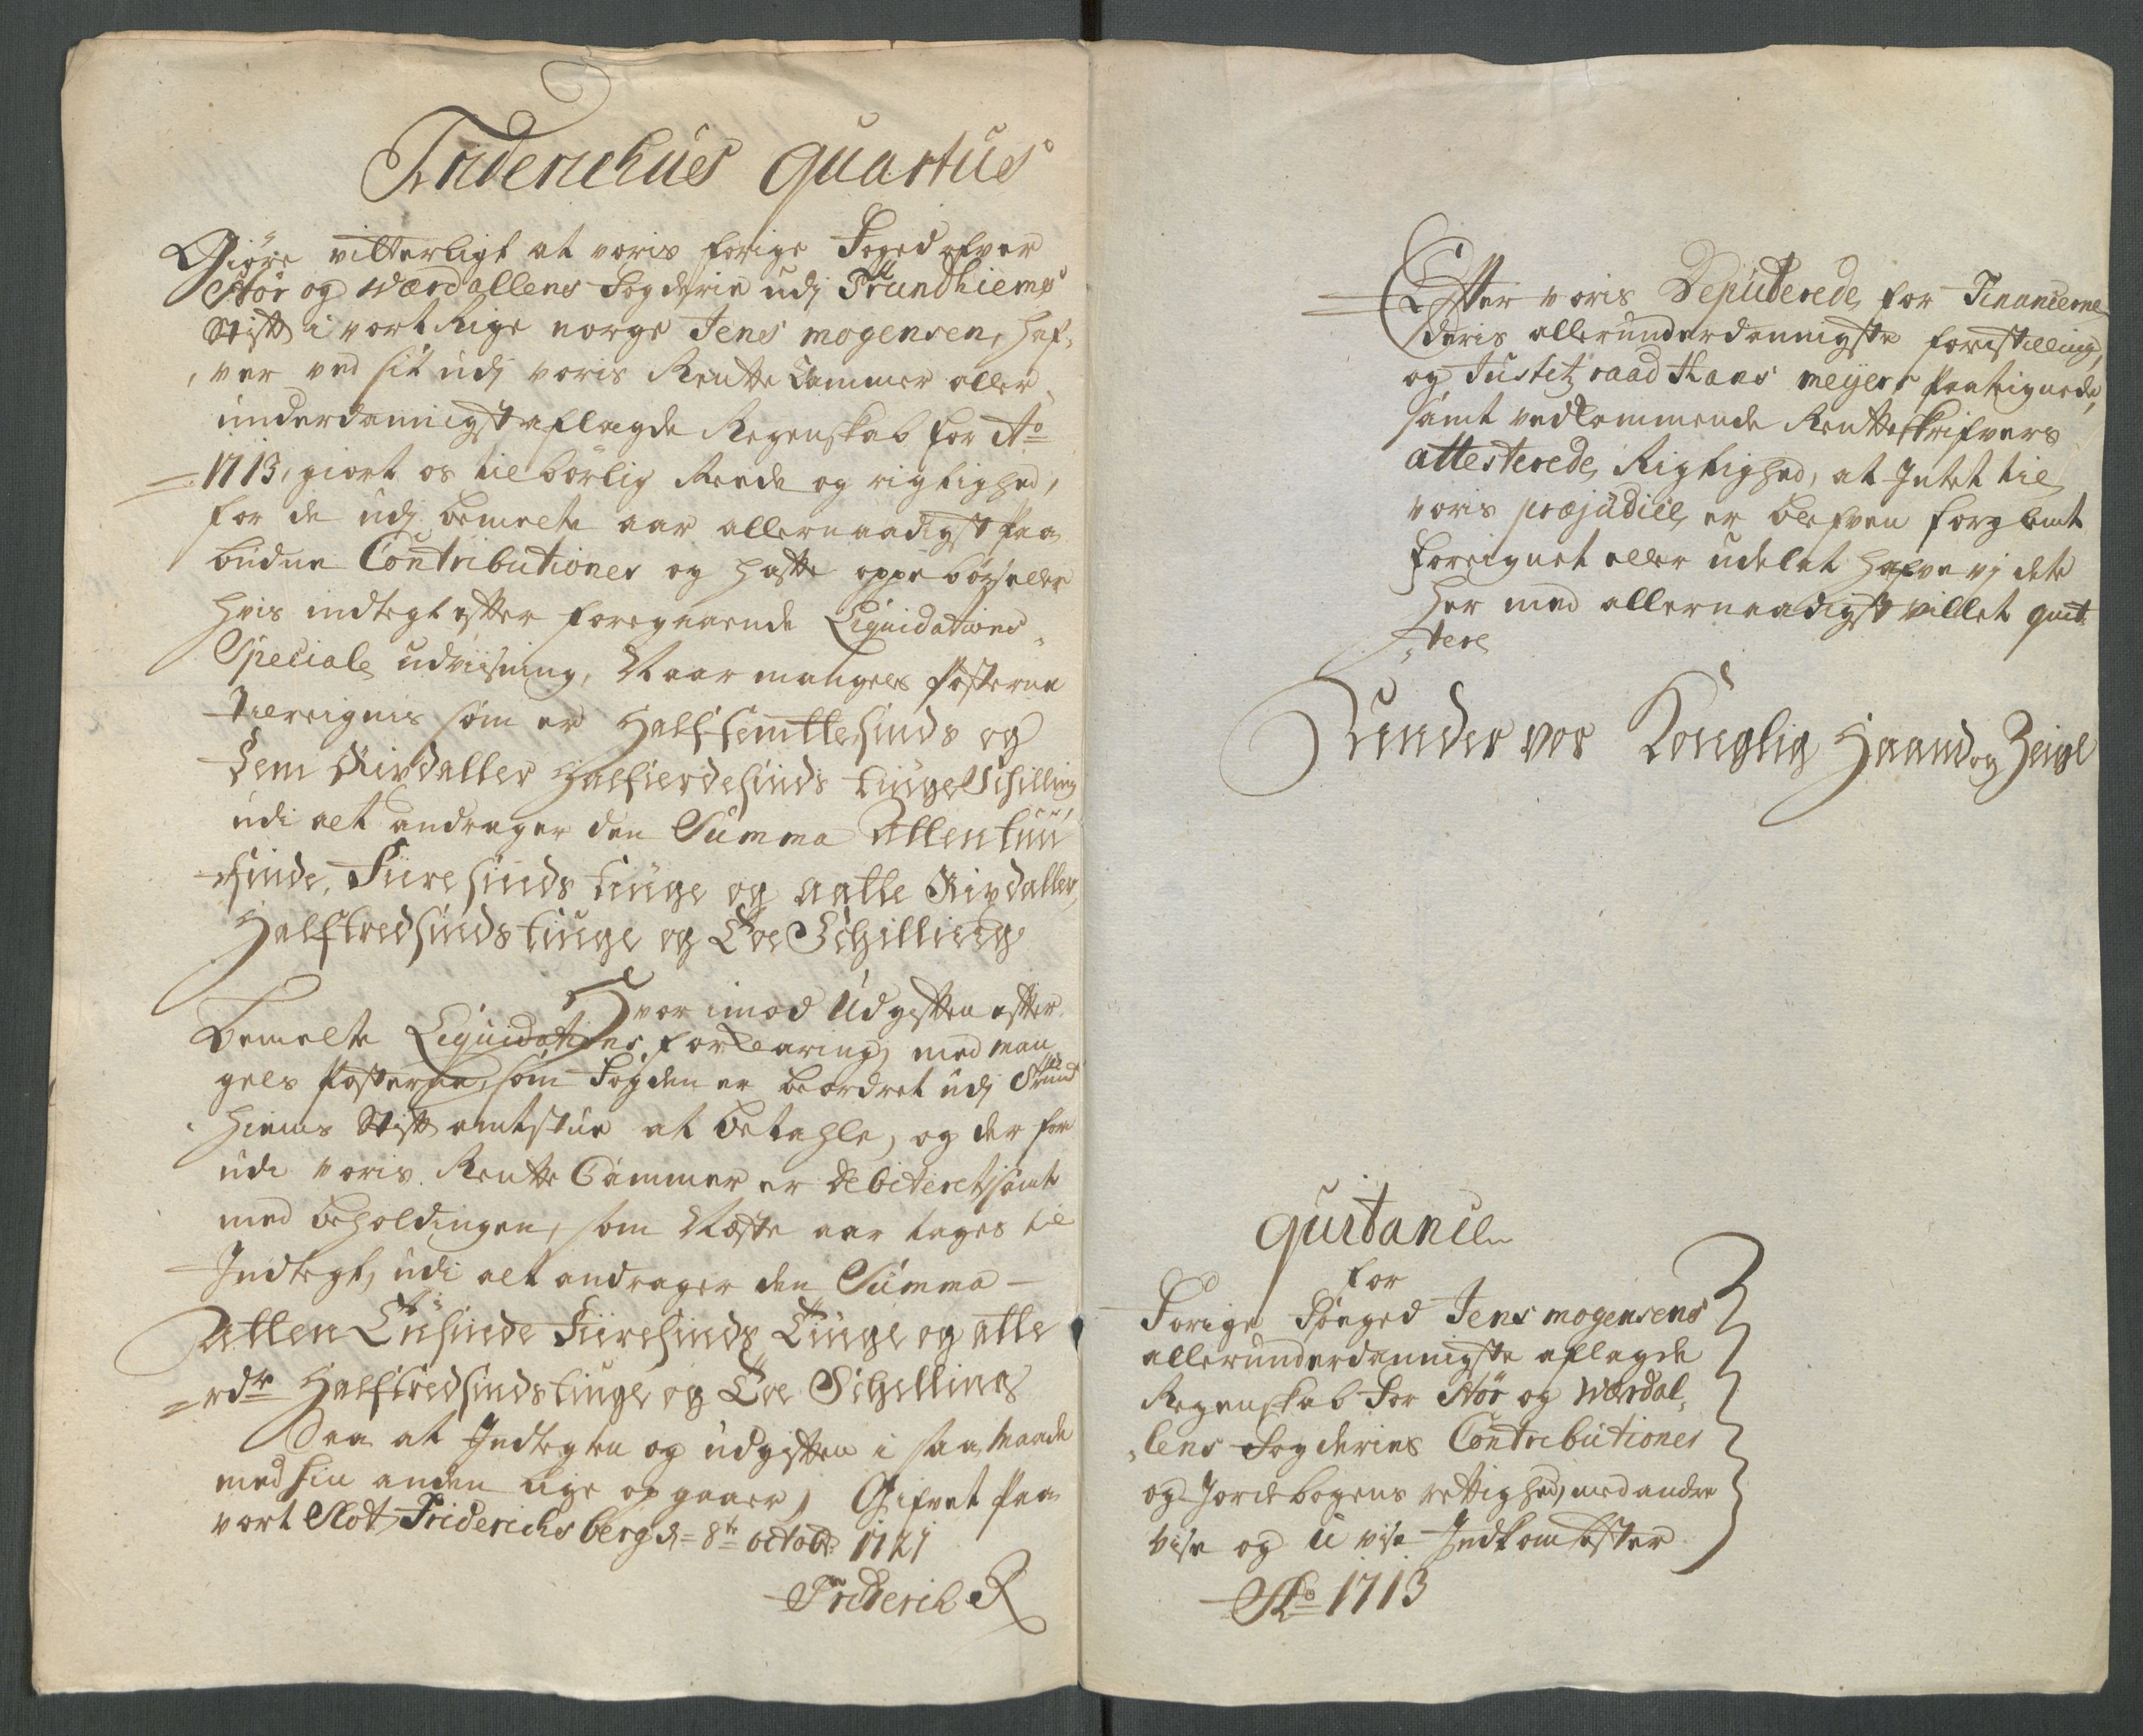 Friderichus Quartus
Giöre vitterligt at voris forige Foged ofver
Stör og Værdallens Fogderie udj Trundhiembs
Stift i vort Rige norge Jens mogensen, haf,
, ver ved sit udj voris Rentte Cammer aller,
underdannigst aflagde Regenskab for Ao
1713, giort os tilbörlig Reede og rigtighed,
for de udj bemelte aar allernaadigst paa
budne Contributioner og hafte oppebörseller
hvis indtegt efter foregaaende Liquidations
Speciale udviisning, Naar mangels Posterne
tilreignis som er Halffemttesinds og
Fem Rixdaller Halfierdesinds tiuge Schilling
udi alt andrager den Summa Attentuu
sinde, Fiiresinds tiuge og aatte Rixdaller,
Halftredsinds tiuge og Toe Schilling
Hvorimod Udgiften efter
bemelte Liquidations forklaring, med man
gels Posterne, som Fogden er beordret udj Trund
hiems Stift amtstue at betahle, og der for
udi voris Rentte Cammer er debiteret, samt
med beholdingen, som Næste aar tages til
Indtegt, udi alt andrager den Summa
Atten Tusinde Fiiresinds Tiuge og atte
rdr Halftredsinds tiuge og Toe Schelling
Saa at Indtegten og udgiften i saa Maade
med hin anden lige opgaaer, Gifvet Paa
vort Slot Friderichsberg d= 8te octobr: 1721
Friderich R
Efter voris Deputerede for Financerne
deris allerunderdannigste forestilling,
og Justitz raad Hans meyers Paategnede,
samt vedkommende Rentteskrifvers
attesterede Rigtighed, at Intet til
voris præjudice er blefven forglemt
foreignet eller udelat hafve vj dete
her med allernaadigst villet quit
, tere
Under vor Konglig Haand og Zeigl
Quitancie
for
Forige Foeged Jens mogensens
allerunderdannigste aflagde
Regenskab for Stör og Værdal,
, lens Fogderies Contributioner
og Jordebogens rettighed, med andre
vise og u vise Indkomster
Ao 1713